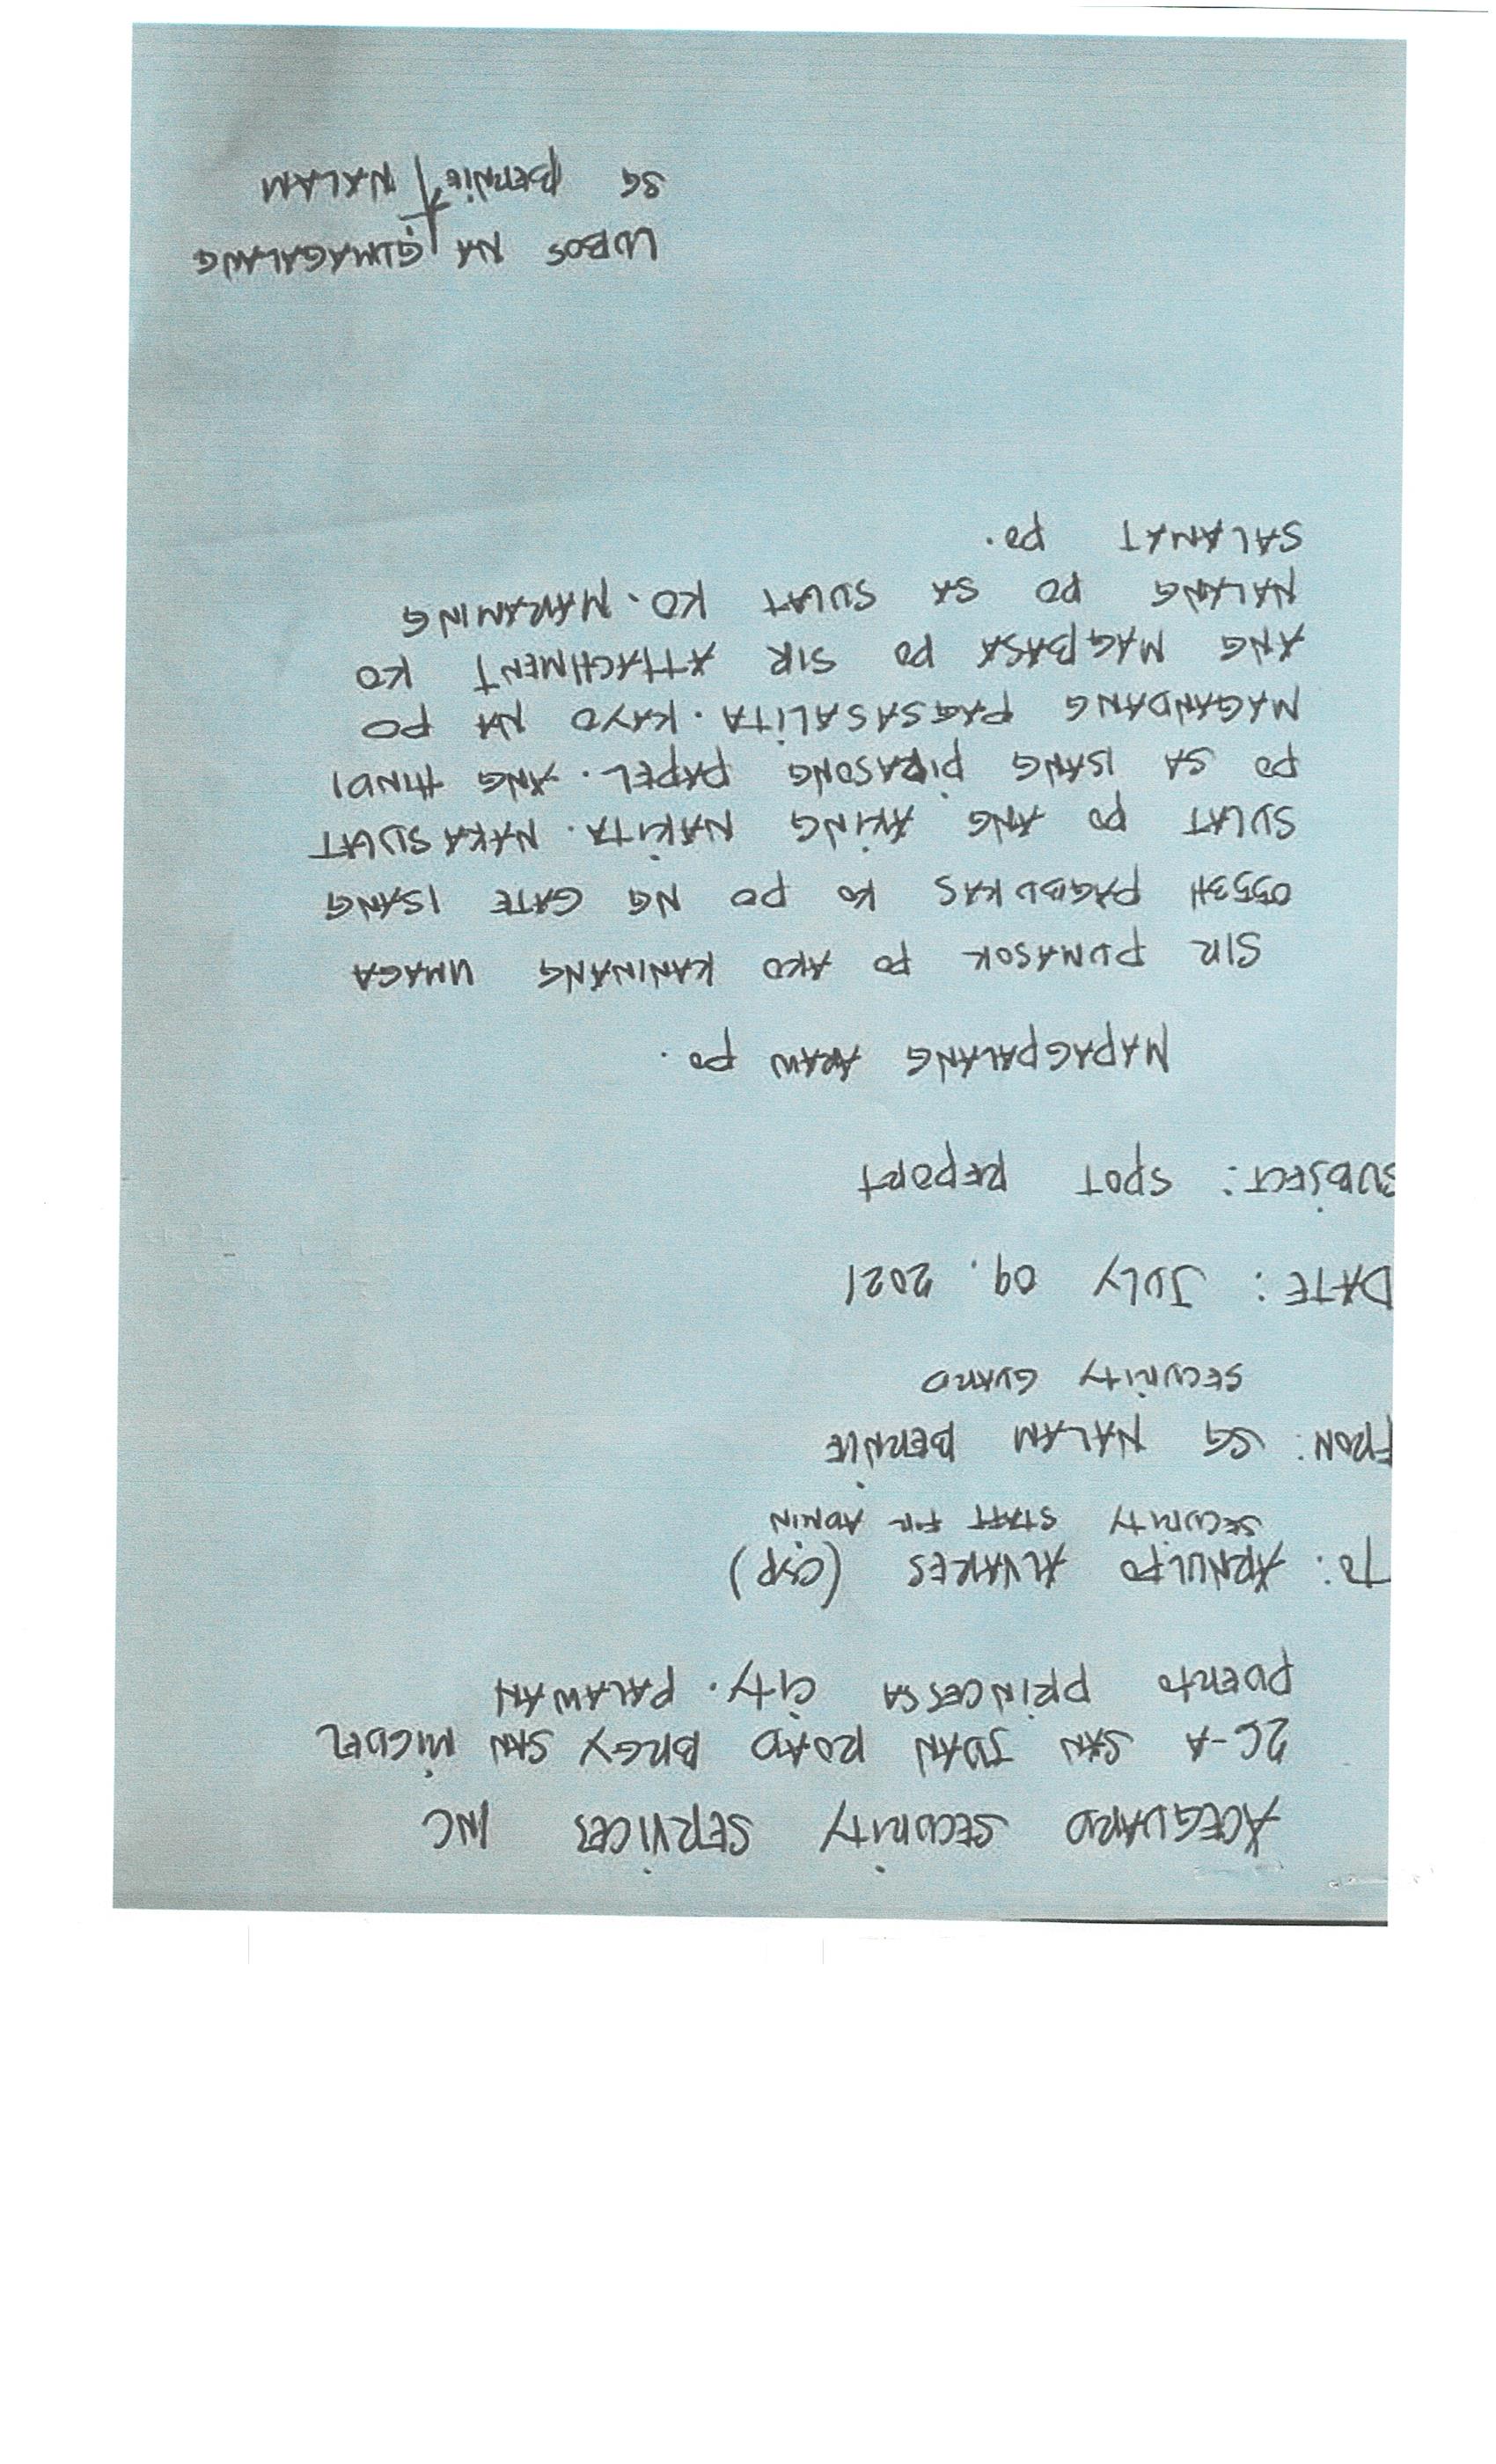 ACEGUARD SECURITY SERVICES INC
2C-A SAN JUAN ROAD BRGY SAN MIGUEL
PUERTO PRINCESSA CITY. PALAWAN
TO: ARNULFO ALVARES (CSP)
SECURITY STAFF FOR ADMIN
FROM: SG NALAM BERNIE
SECURITY GUARD
DATE: JULY 09. 2021
SUBJECT: SPOT REPORT
MAPAGPALANG ARAW PO.
SIR PUMASOK PO AKO KANINANG UMAGA
0553H PAGBUKAS KO PO NG GATE ISANG
SULAT PO ANG AKING NAKITA. NAKASULAT
PO SA ISANG PIRASONG PAPEL. ANG HINDI
MAGANDANG PAGSASALITA. KAYO NA PO
ANG MAGBASA PO SIR ATTACHMENT KO
NALANG PO SA SULAT KO. MARAMING
SALAMAT PO.
LUBOS NA GUMAGALANG
SG BERNIE NALAM